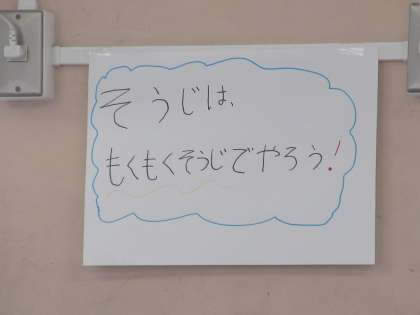 そうじは、
もくもくそうじでやろう!